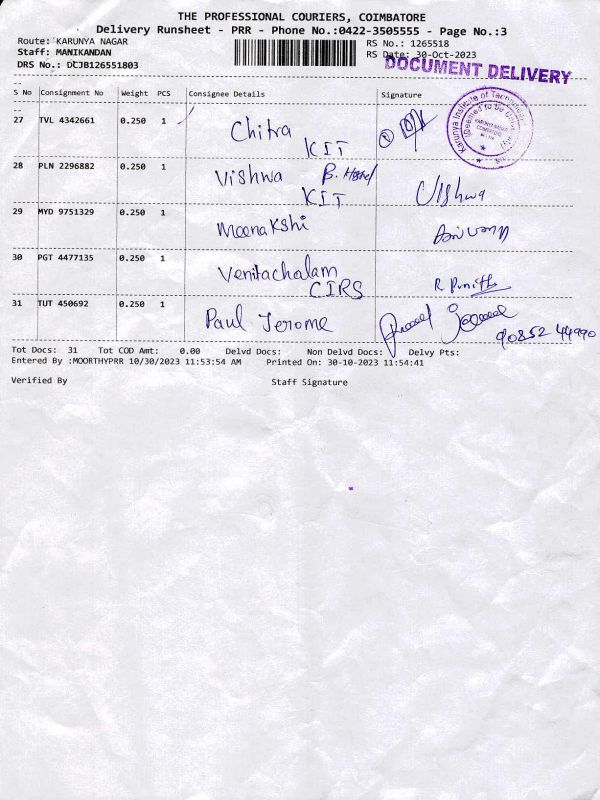 THE PROFESSIONAL COURIERS, COIMBATORE
Delivery Runsheet - PRR - Phone No.:0422-3505555 - Page No.:3
Route: KARUNYA NAGAR RS No.: 1265518
Staff: MANIKANDAN RS Date: 30-Oct-2023
DRS No.: DLJB126551803
DOCUMENT DELIVERY
S No Consignment No Weight PCS Consignee Details Signature
Karunya Institute of Technology
(Deemed to be University)
KARUNYA NAGAR
COIMBATORE
27 TVL 4342661 0.250 1 Chitra
KIT
28 PLN 2296882 0.250 1 Vishwa Vishwa
KIT
29 MYD 9751329 0.250 1 Meenakshi
30 PGT 4477135 0.250 1 Venitachalam R Punith
CIRS
31 TUT 450692 0.250 1 Paul Jerome
90852 44990
Tot Docs: 31 Tot COD Amt: 0.00 Delvd Docs: Non Delvd Docs: Delvy Pts:
Entered By :MOORTHYPRR 10/30/2023 11:53:54 AM Printed On: 30-10-2023 11:54:41
Verified By Staff Signature